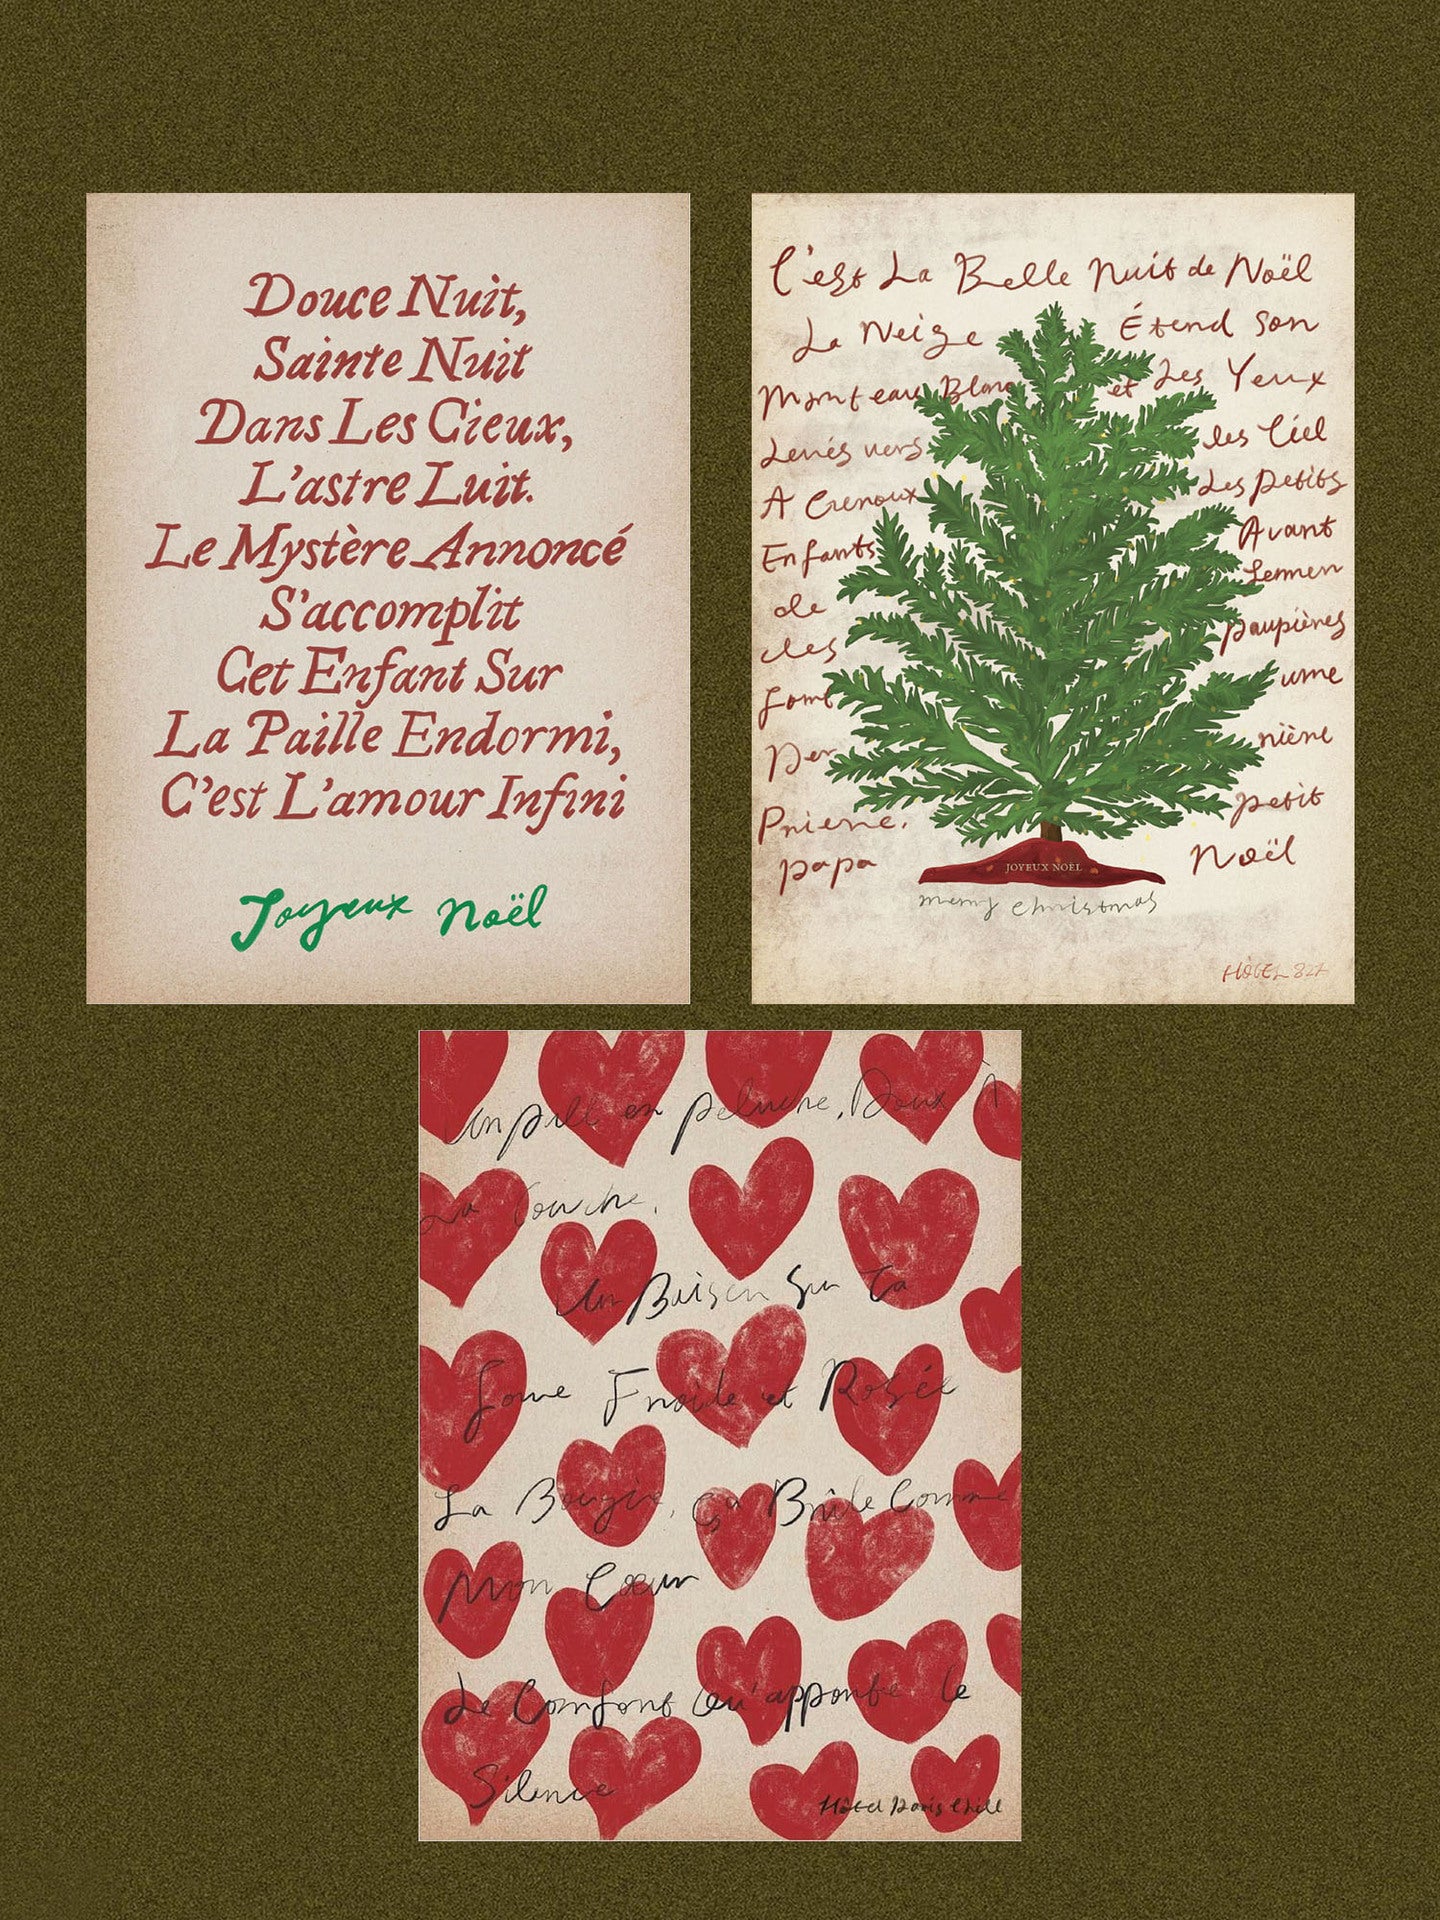 Douce Nuit,
Sainte Nuit
Dans Les Cieux,
L'astre Luit.
Le Mystère Annoncé
S'accomplit
Cet Enfant Sur
La Paille Endormi,
C'est L'amour Infini
Joyeux Noël
C'est La Belle Nuit de Noël
La Neige Étend Son
Manteau Blanc et Les Yeux
Levés vers les Ciel
A Genoux Les Petits
Enfants Avant
de
des paupières
font une
Der nière
Prière. petit
papa Noël
JOYEUX NOËL
merry christmas
HÔTEL 827
Un pull en peluche, Doux À
La Couche,
Un Baiser Sur Ta
Joue Froide et Rosée
La Bougie, ça Brûle Comme
Mon Cœur
Le Confort Qu'apporte le
Silence
Hôtel Paris Chill